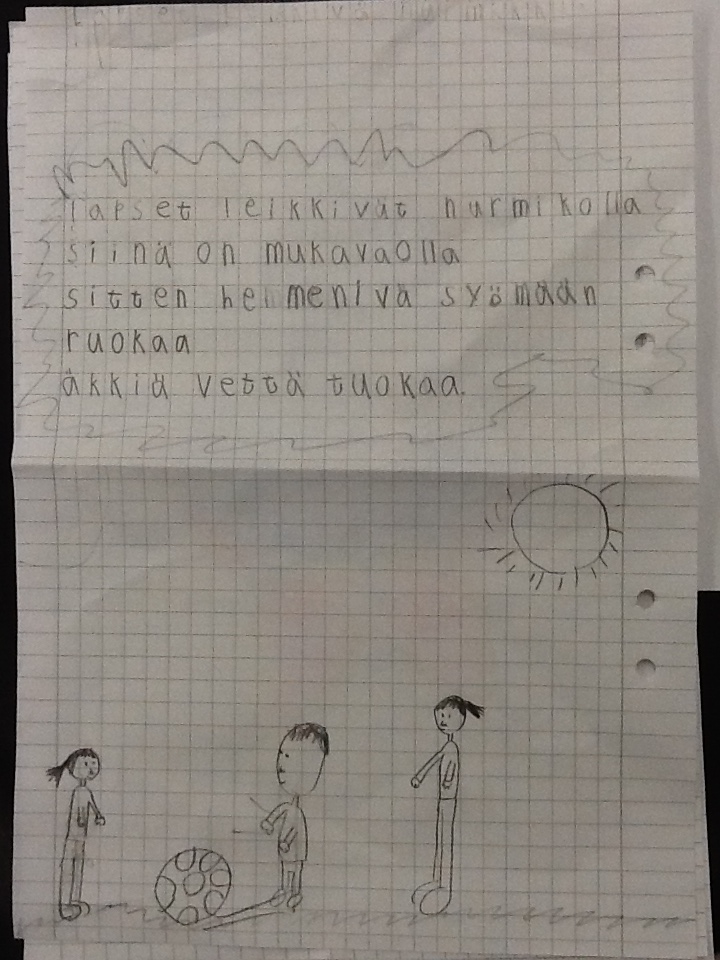 lapset leikkivät nurmikolla
siinä on mukavaolla
sitten he menivä syömään
ruokaa
äkkiä vettä tuokaa.